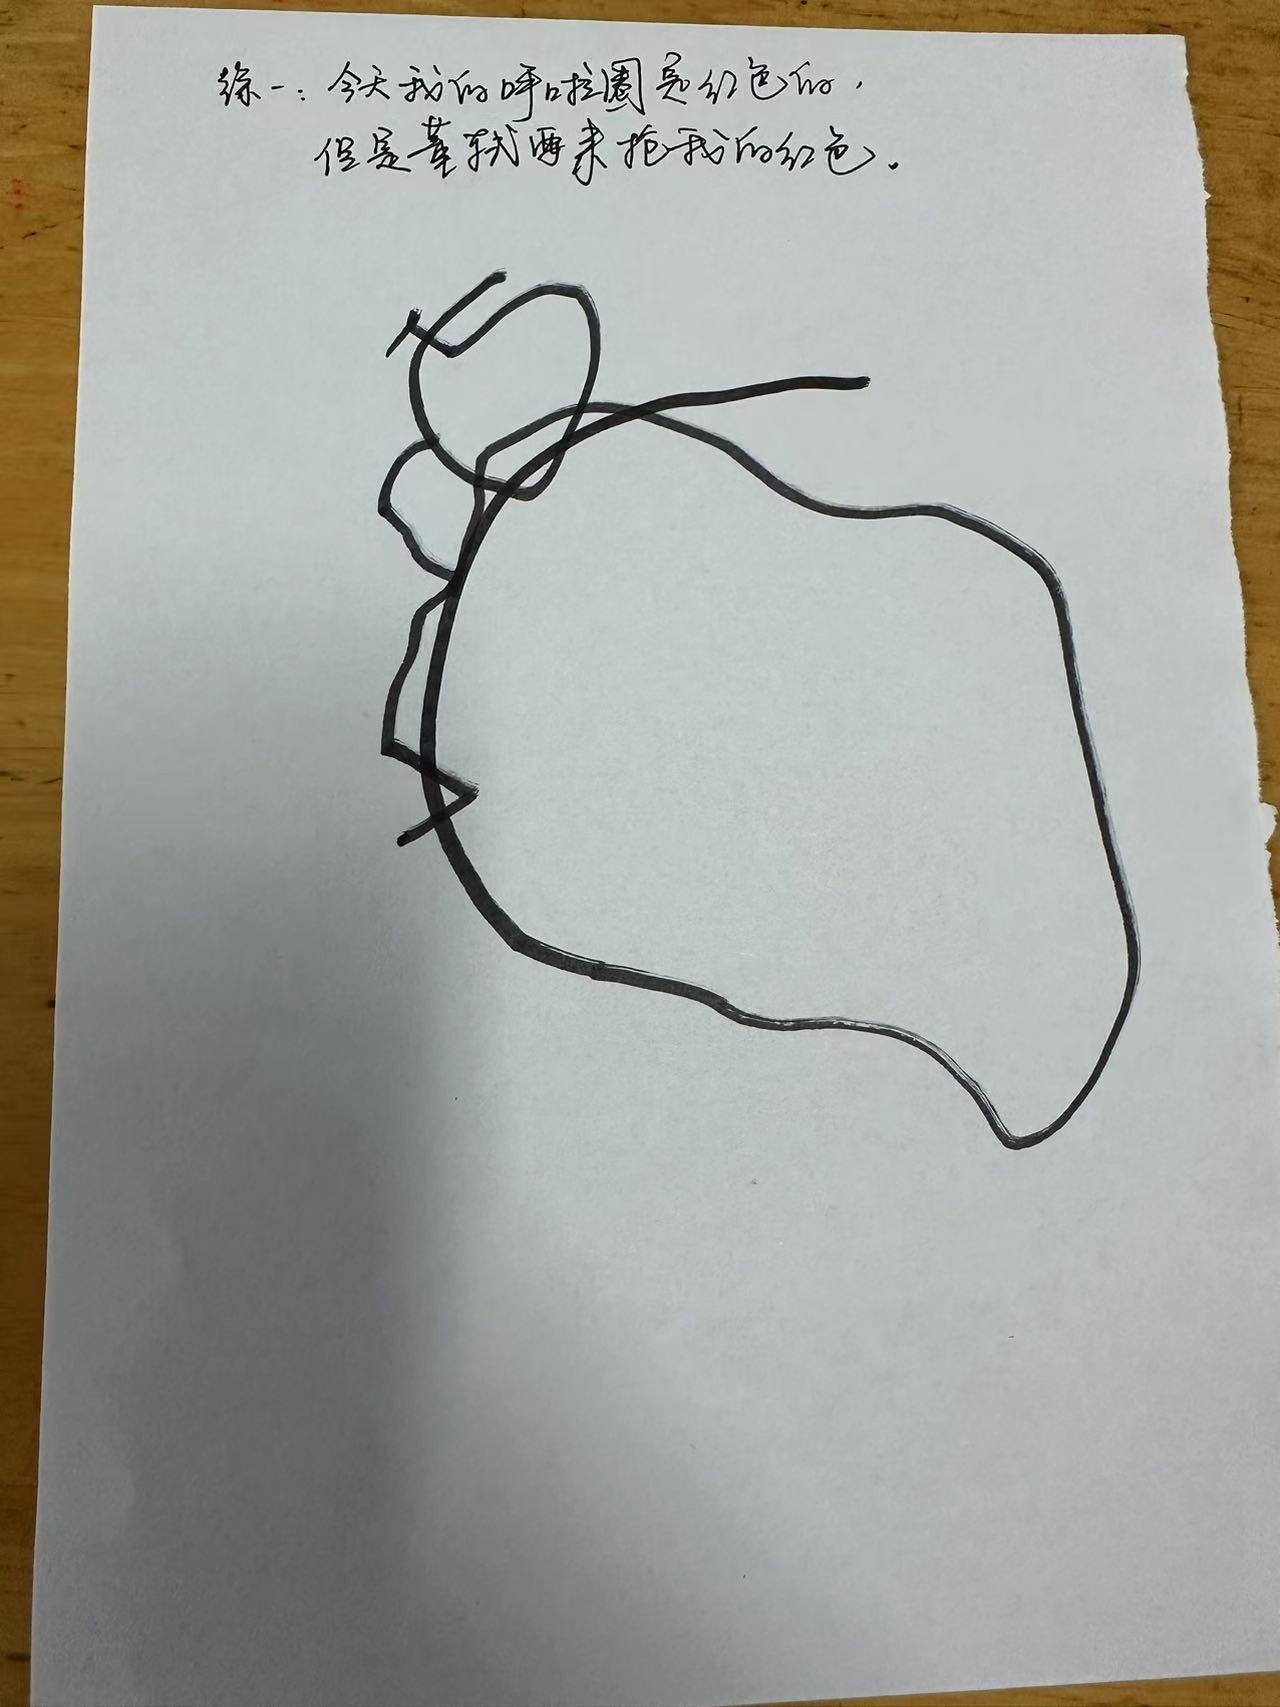 徐一：今天我的呼啦圈是红色的，
但是董轼要来抢我的红色。